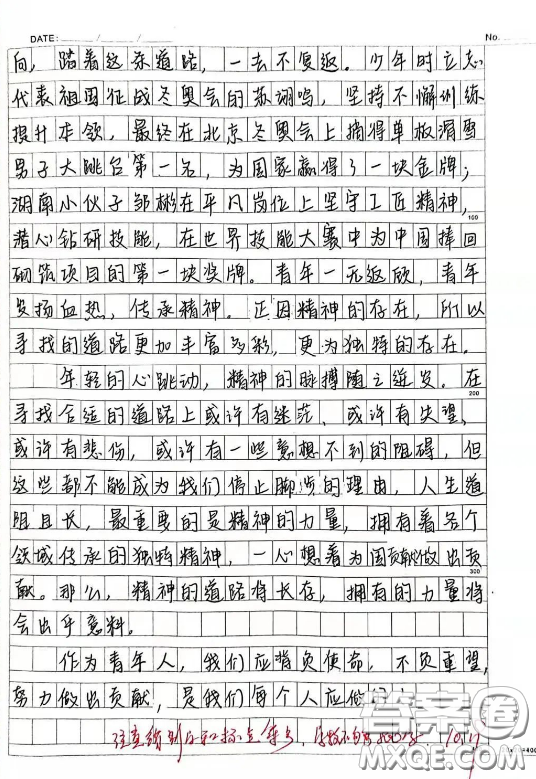 DATE: / / No.
向，踏着这条道路，一去不复返。少年时立志
代表祖国征战冬奥会的苏翊鸣，坚持不懈训练
提升本领，最终在北京冬奥会上摘得单板滑雪
男子大跳台第一名，为国家赢得了一块金牌；
湖南小伙子邹彬在平凡岗位上坚守工匠精神，
100
潜心钻研技能，在世界技能大赛中为中国捧回
砌筑项目的第一块奖牌。青年一无返顾，青年
发扬血热，传承精神。正因精神的存在，所以
寻找的道路更加丰富多彩，更为独特的存在。
年轻的心跳动，精神的脉搏随之迸发。在
200
寻找合适的道路上或许有迷茫，或许有失望，
或许有悲伤，或许有一些意想不到的阻碍，但
这些都不能成为我们停止脚步的理由，人生道
阻且长，最重要的是精神的力量，拥有着各个
领域传承的独特精神，一心想着为国贡献做出贡
300
献。那么，精神的道路将长存，拥有的力量将
会出乎意料。
作为青年人，我们应背负使命，不负重望，
努力做出贡献，是我们每个人应做
答案圈
400
MXQE.COM